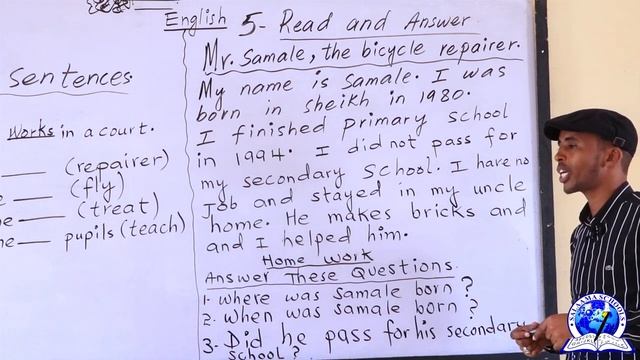 English
Sentences
Works in a court.
(repairer)
(fly)
(treat)
pupils (teach)
5- Read and Answer
Mr. Samale, the bicycle repairer.
My name is samale. I was
born in sheikh in 1980.
I finished primary school
in 1994. I did not pass for
my secondary school. I have no
Job and stayed in my uncle
home. He makes bricks and
and I helped him.
Home Work
Answer These Questions.
1- where was samale born?
2- when was samale born?
3- Did he pass for his secondary
school?
SALAAMA SCHOOLS